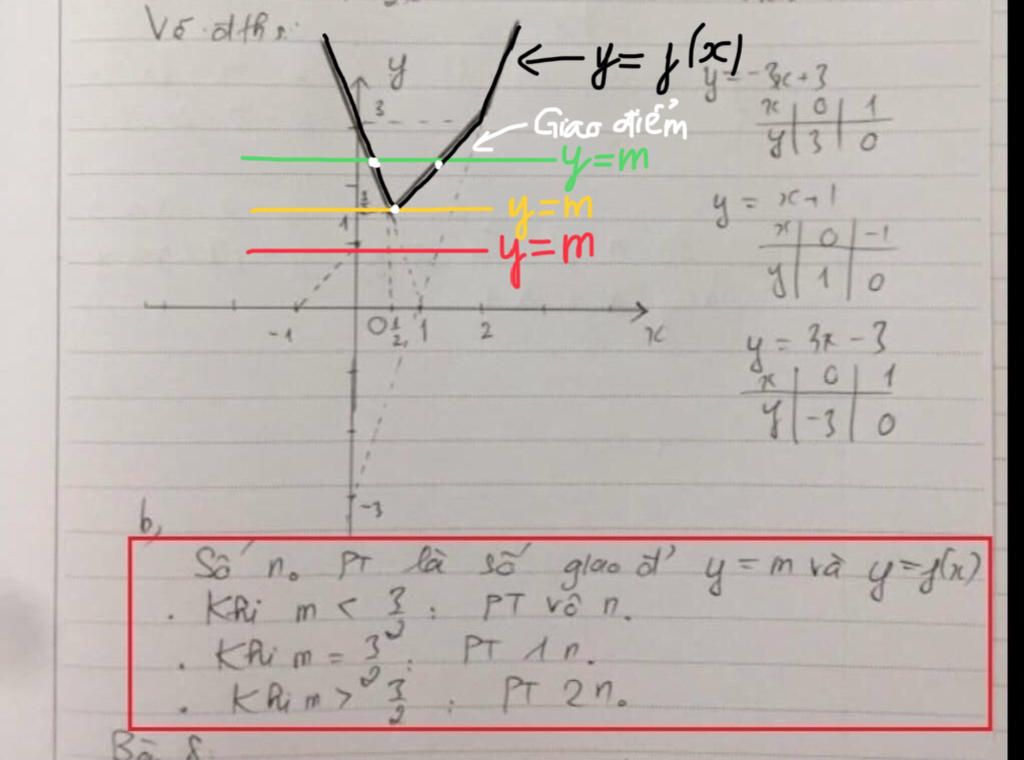 Vẽ đths:
y
y = f(x)
y = -3x + 3
x 0 1
y 3 0
3
Giao điểm
y = m
3/2
y = m
1
y = m
y = x + 1
x 0 -1
y 1 0
-1 0 1/2 1 2 x
y = 3x - 3
x 0 1
y -3 0
-3
b,
Số n. PT là số giao đ' y = m và y = f(x)
. Khi m < 3/2 : PT vô n.
. Khi m = 3/2 : PT 1 n.
. Khi m > 3/2 : PT 2 n.